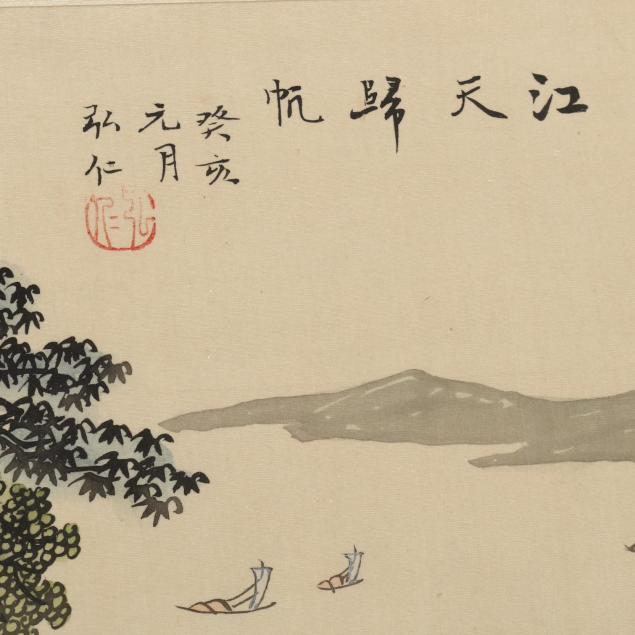 江天歸帆
癸亥
元月
弘仁
弘仁